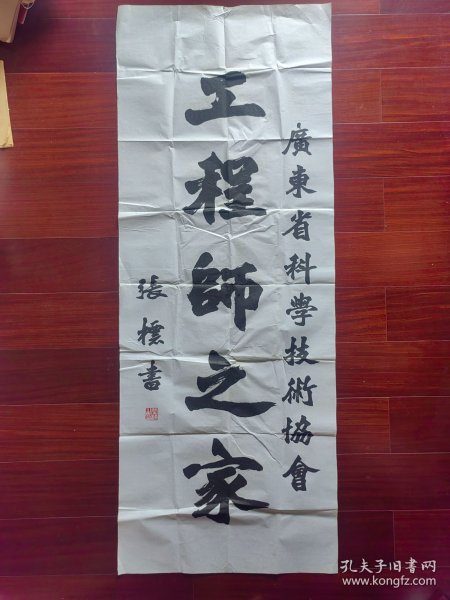 廣東省科學技術協會
工程師之家
張標書
孔夫子旧书网
www.kongfz.com